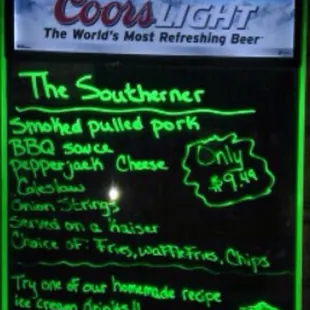 Coors LIGHT
The World's Most Refreshing Beer
The Southerner
Smoked pulled pork
BBQ sauce
pepperjack Cheese
Coleslaw
Onion Strings
Served on a Kaiser
Choice of: Fries, waffle Fries, Chips
Only
$9.49
Try one of our homemade recipe
ice cream drinks!!